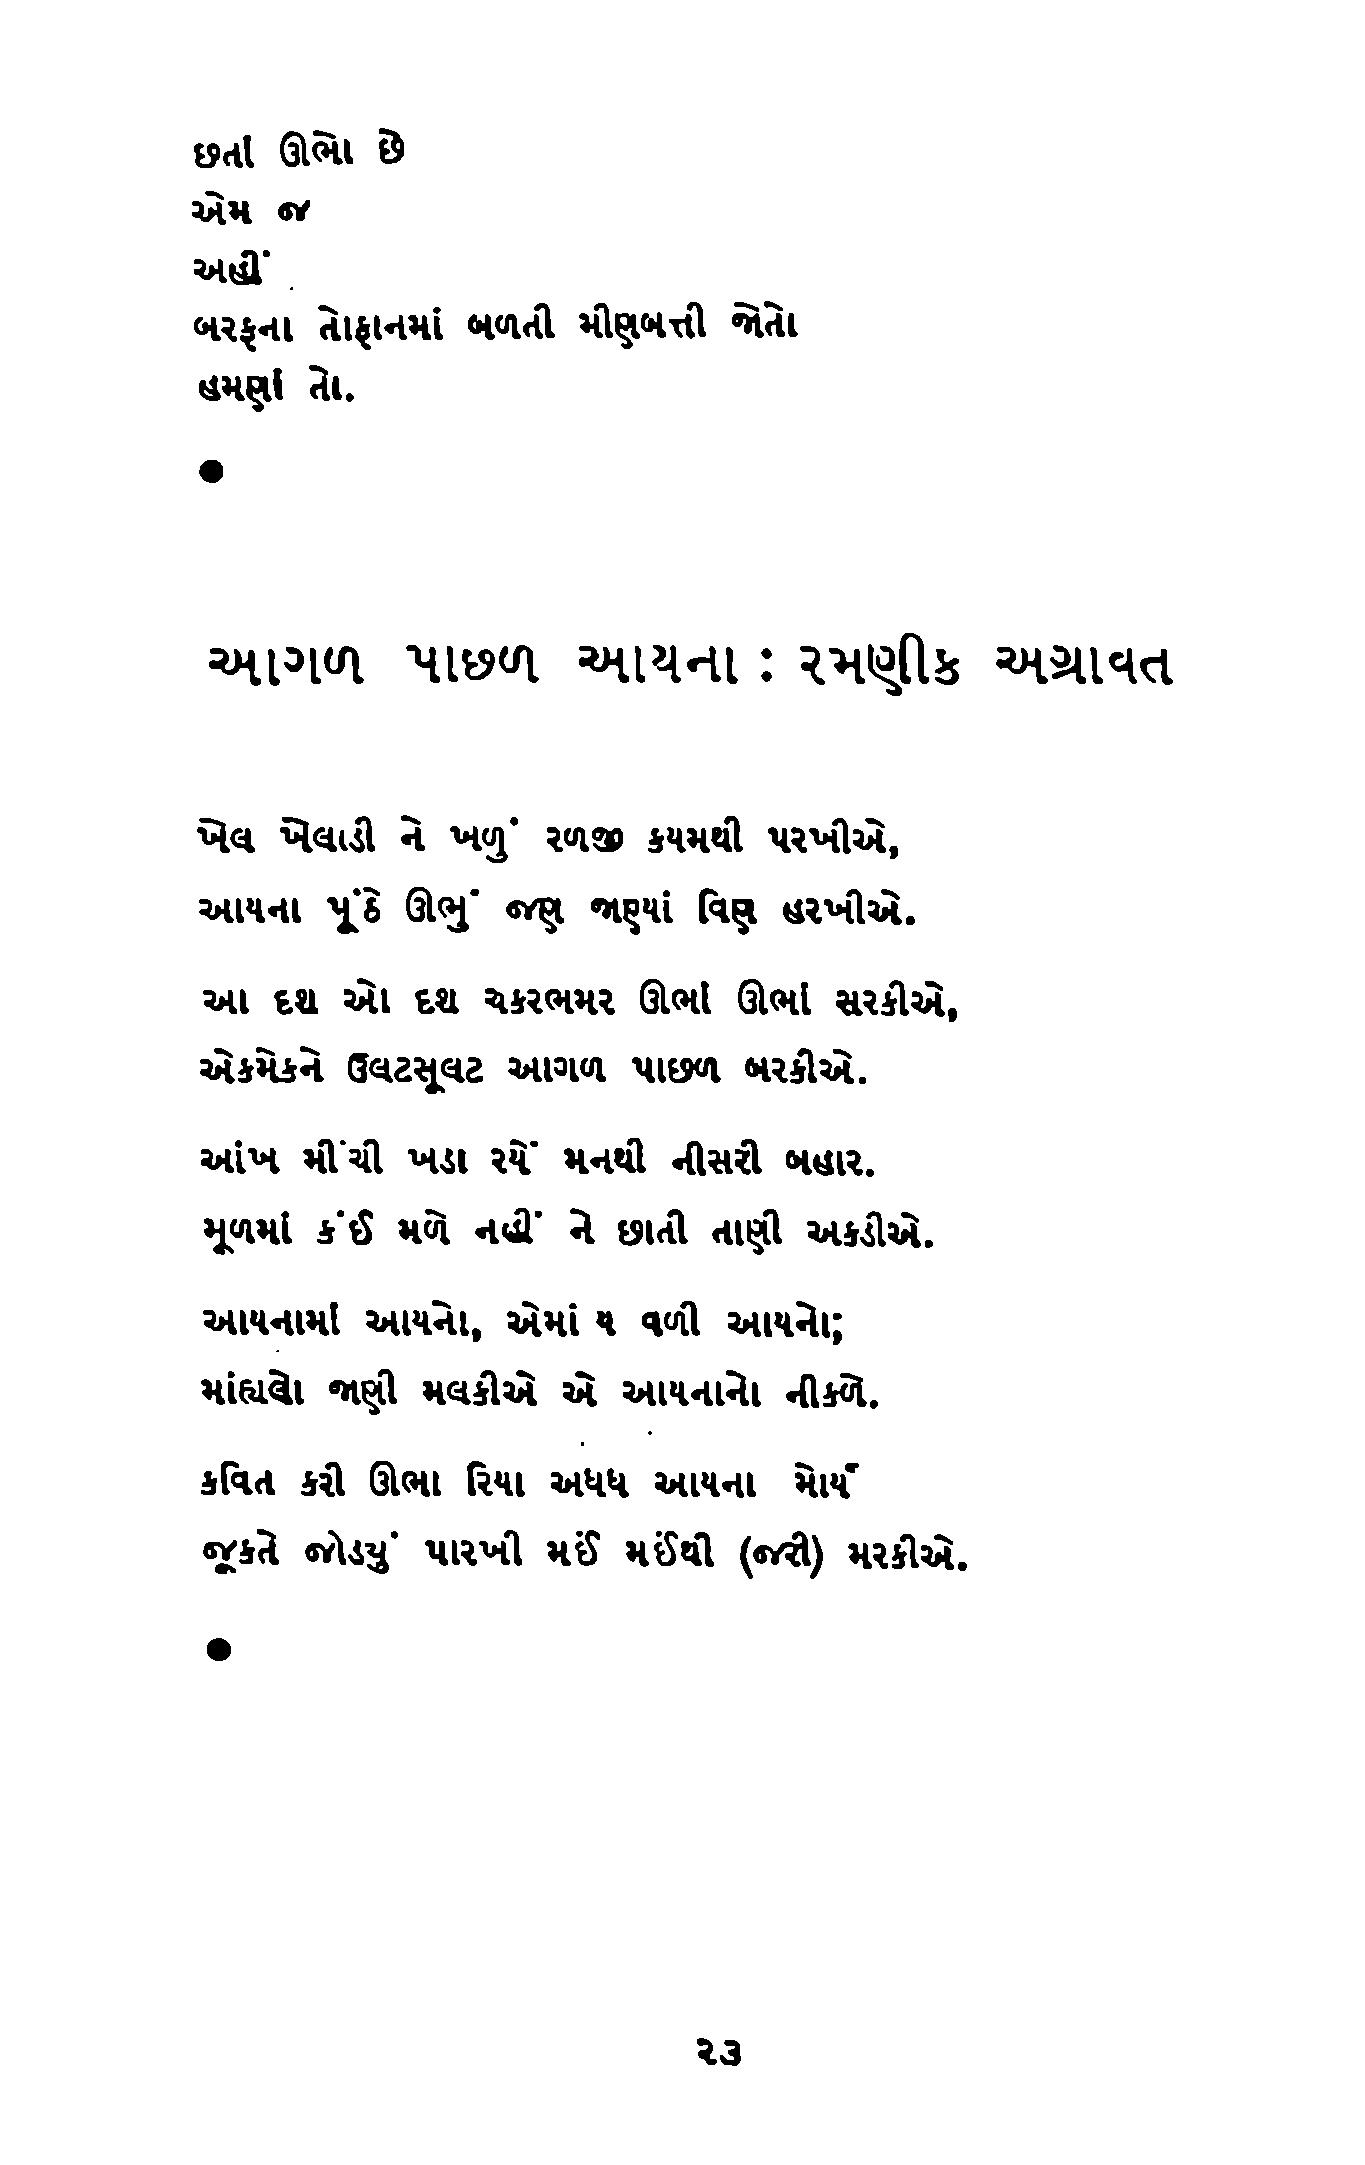 છતાં ઊભો છે
એમ જ
અહીં
બરફના તોફાનમાં બળતી મીણબત્તી જોતો
હમણાં તો.
●
આગળ પાછળ આયના : રમણીક અગ્રાવત
ખેલ ખેલાડી ને ખળું રળજી કયમથી પરખીએ,
આયના પૂંઠે ઊભું જણ જાણ્યાં વિણ હરખીએ.
આ દશ ઓ દશ ચકરભમર ઊભાં ઊભાં સરકીએ,
એકમેકને ઉલટસૂલટ આગળ પાછળ બરકીએ.
આંખ મીંચી ખડા રયેં મનથી નીસરી બહાર.
મૂળમાં કંઈ મળે નહીં ને છાતી તાણી અકડીએ.
આયનામાં આયનો, એમાં ય વળી આયનો;
માંહ્યલો જાણી મલકીએ એ આયનાનો નીકળે.
કવિત કરી ઊભા રિયા અધધ આયના મોર્ય
જૂકતે જોડયું પારખી મઈં મઈંથી (જરી) મરકીએ.
●
૨૩